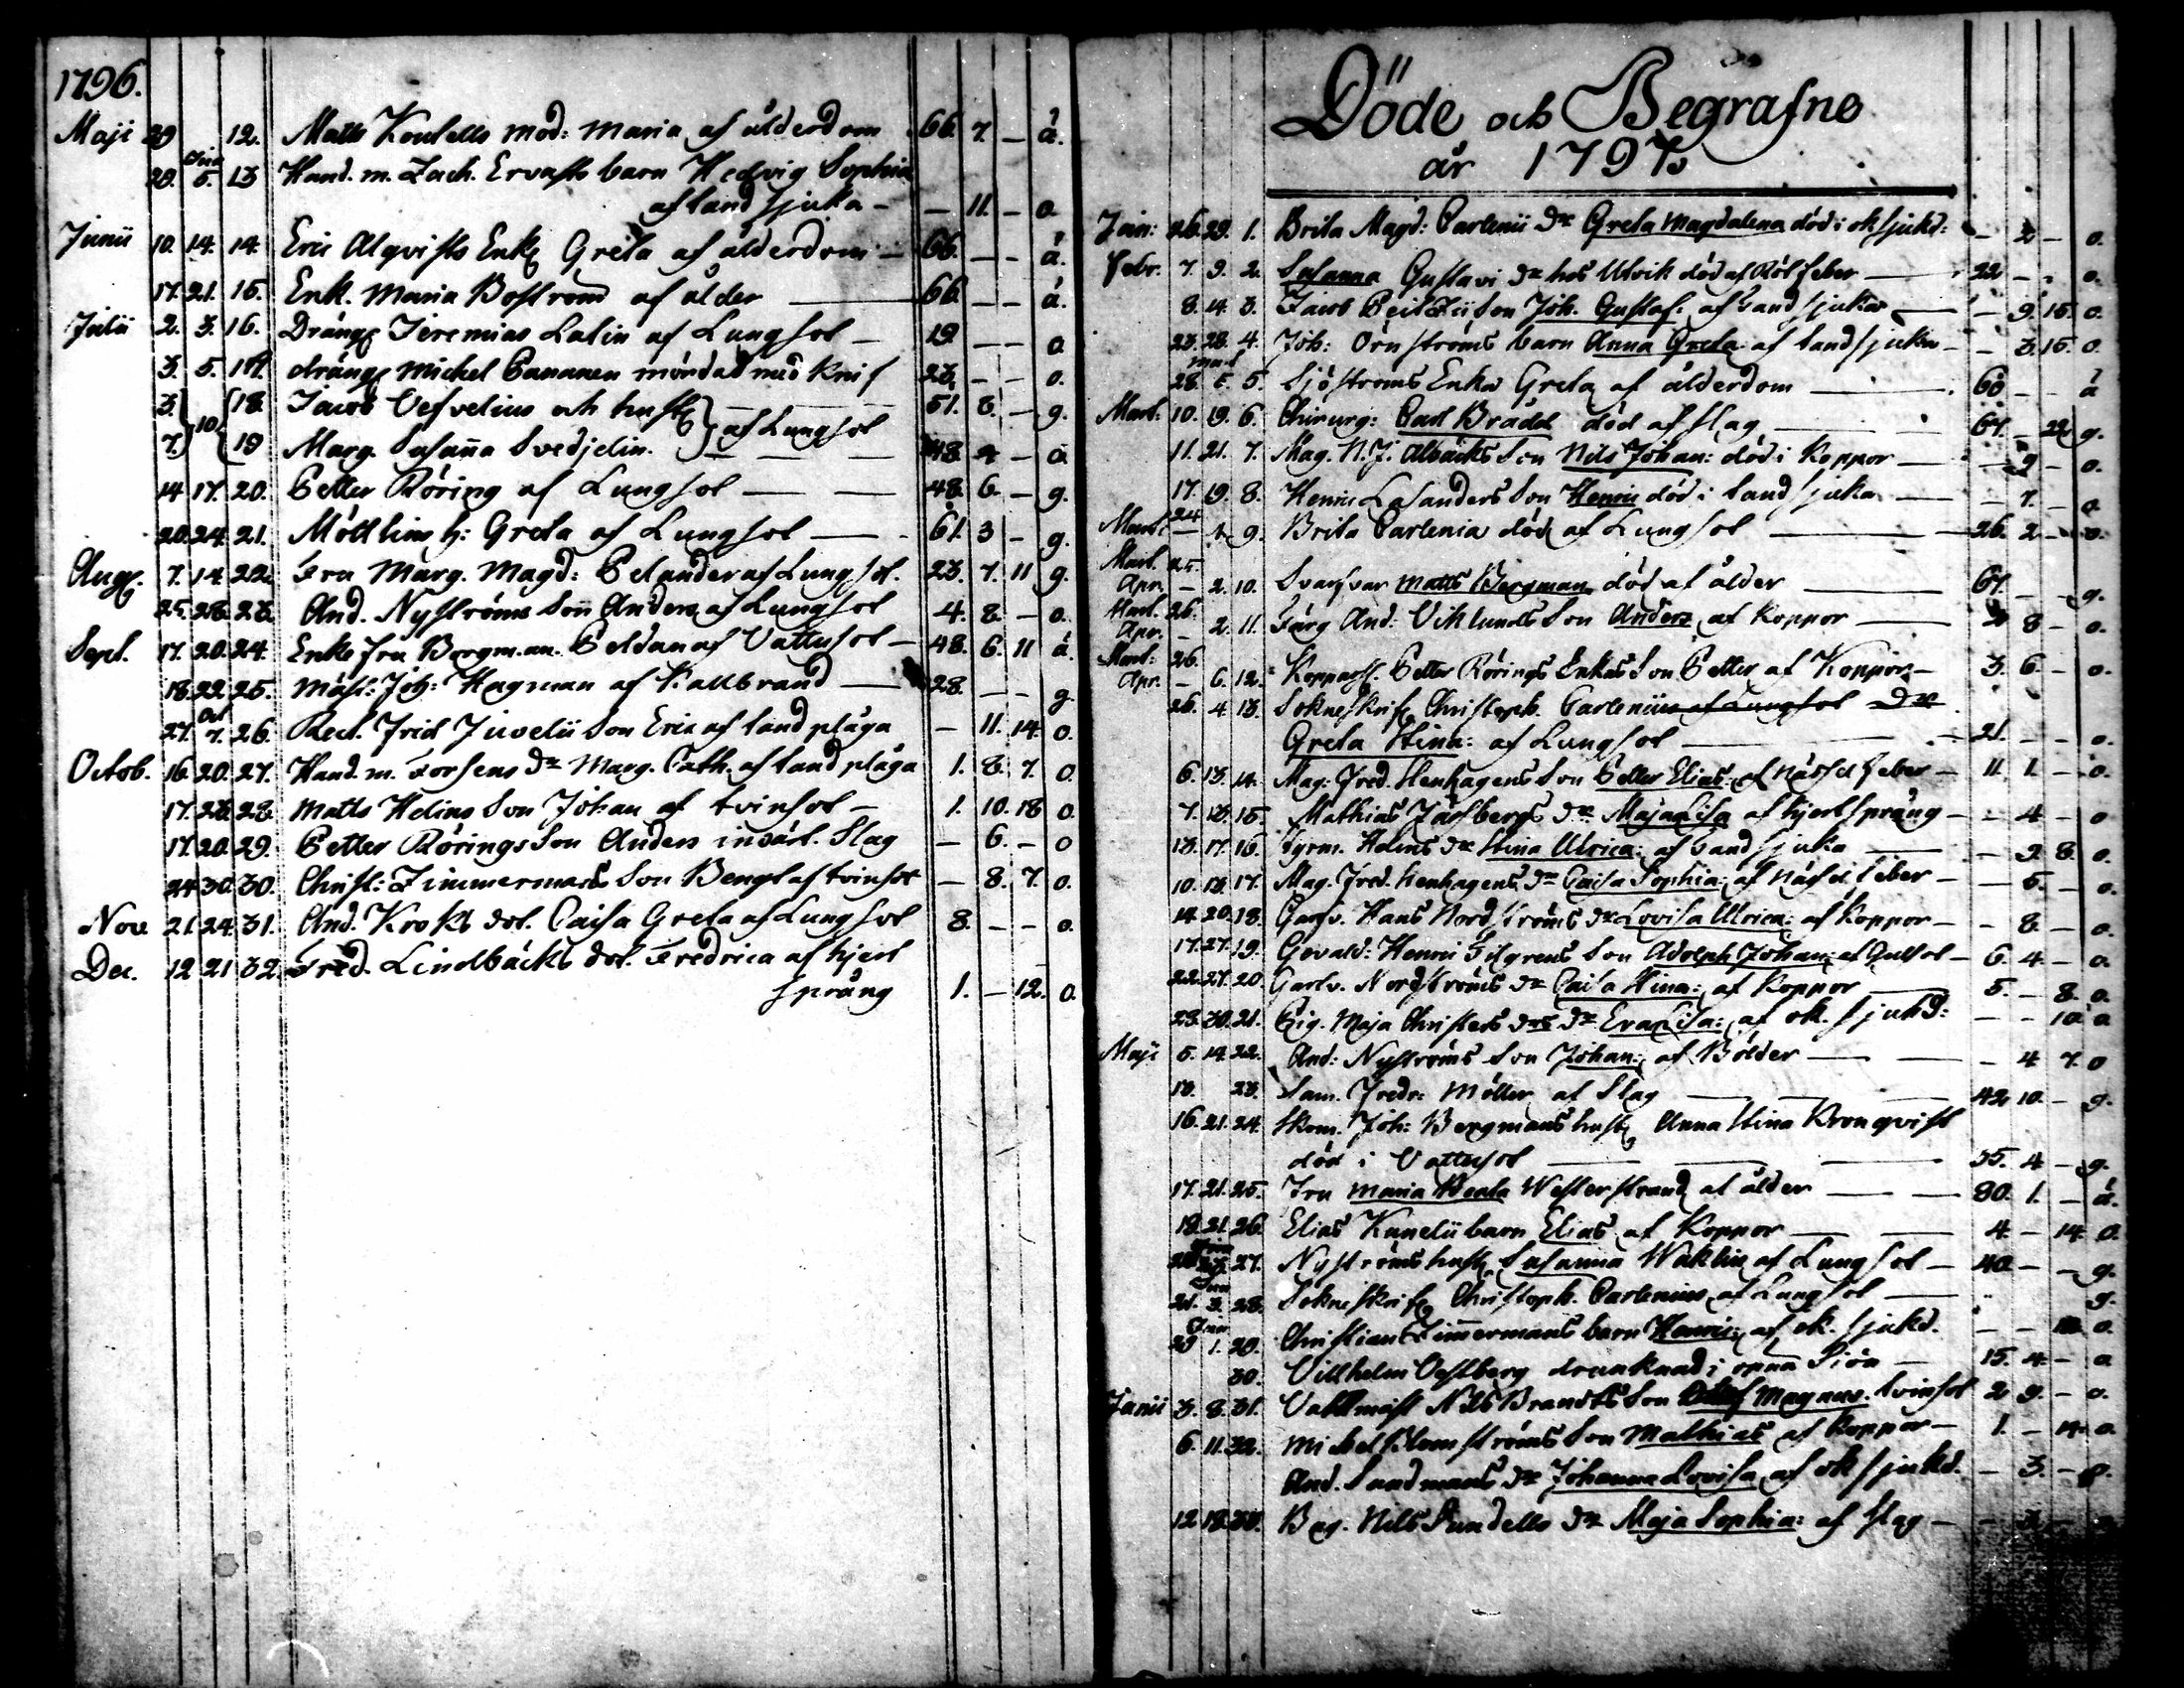 1796.
Maji 29 12. Matts Koutells mod: Maria af ålderdom 66. 7. — å.
29. Jun 5. 13 Hand. m. Zach. Ervasts barn Hedvig Sophia
af tand sjuka — — 11. — o.
Junii 10. 14. 14. Eric Alqvists Enk Greta af ålderdom — 66. — — å.
17. 21. 15. Enk. Maria Boström af ålder — 66 — — å.
Julii 2. 3. 16. Dräng Jeremias Lalin af Lungsot — 19 — — o.
3. 5. 17. dräng Michel Pananen mördad med Knif 23. — — o.
3. 10 18. Jacob Vesvelius och hust 51. 8. — g.
7. 19 Marg. Susaña Svedjelin. af Lungsot 48. 4 — o.
14 17. 20. Petter Röring af Lungsot — 48. 6. — g.
20. 24. 21. Mölllins h: Greta af Lungsot — 61. 3 — g.
Aug. 7. 14. 22. Fru Marg. Magd: Pelander af Lungsot. 23. 7. 11 g.
25. 28. 23. And. Nyströms Son Anders af Lungsot 4. 8. — o.
Sept. 17. 20. 24. Enke fru Borgm.an. Peldan af Vattusot — 48. 6. 11 å.
18. 22. 25. Mäst: Joh: Hagman af Kallbrand — 28. — — g.
27. Oct 7. 26. Red. Frid Juvelii Son Eric af land plåga — 11. 14. o.
Octob. 16. 20. 27. Hand. m. Forsens dr Marg. Cath. af land plåga 1. 8. 7. o.
17. 23. 28. Matts Helins Son Johan af tvinsot — 1. 10. 18 o.
17. 20. 29. Petter Rörings Son Anders invärt. Slag — 6. — o
24 30. 30. Christ: Zimmermans Son Bengt af tvinsot — 8. 7. o.
Nov. 21. 24. 31. And. Kroks dot. Caisa Greta af Lungsot 8. — — o.
Dec. 12 21 32. Fred. Lindbäcks dot. Fredrica af hjert
språng 1. — 12. o.
Döde och Begrafne
år 1797.
Jan: 26. 29. 1. Brita Magd: Carlenii dr Greta Magdalena död i ok sjukd: — 2 — o.
Febr. 7. 9. 2. Susanna Gustavi dr hos Ulvik död af Röt feber — 22 — — o.
8. 14. 3. Jacob Son Joh. Gustaf: af tand sjuka — — 9. 15. o.
23. 28. 4. Joh: Örnströms barn Anna Greta af tandsjuka — — 3. 15. o.
28. Mart 5. 5. Sjöströms Enka Greta af ålderdom — 60 — — å
Mart. 10. 19. 6. Chirurg: Carl Brådd död af slag — 67. — 22 g.
11. 21. 7. Mag. N. J. Albäcks Son Nils Johan: död i Koppor — — 9 — o.
17. 19. 8. Henric Lasanders Son Henric död i tand sjuka — — 7. — o.
Mart: 24 — 9. Brita Carlenia död af Lungsot — 26. 2 — o.
Mart. 25.
Apr. — 2. 10. Svarfvar Matts Bergman död af ålder — 67. — — g.
Mart. 26.
Apr. — 2. 11. Färg And: Viklunds Son Anders af Koppor — 8 — o.
Mart: 26.
Apr. — 6. 12. Kopparsl. Petter Rörings Enkas Son Petter af Koppor — 3. 6 — o.
26. 4. 13. Sokneskrif Christoph. Carlenius af Lungsot dr
Greta Stina: af Lungsot — 21. — — o.
6. 13. 14. Mag: Fred. Henhagens Son Petter Elias: af nässel feber — 11. 1. — o.
7. 13. 15. Mathias Järfbergs dr Maja Lisa af hjertspräng — — 4 — o
13. 17. 16. Styrm. Helms dr Stina Ulrica: af tand sjuka — — 9. 8. o.
10. 13. 17. Mag. Fred. Henhagens dr Caisa Sophia: af nässel feber — — 5. — o.
14. 20. 18. Garfv. Hans Nordströms dr Lovisa Ulrica: af Koppor — — 8 — o.
17. 27. 19. Gevald: Henric Gilgrens Son Adolph Johan: af Gulsot — 6. 4 — o.
22. 27. 20. Garfv. Nordströms dr Caisa Stina: af Koppor — 5. — 8. o.
23. 30. 21. Pig. Maja Christers dr Eva Lisa: af ok. sjukd: — — 10. o
Maji 5. 14. 22. And: Nyströms Son Johan: af Bölder — — 4 7. o
13. 23. Sam. Fredr: Möller af Slag — 42 10. — g.
16. 21. 24. Skom. Joh: Bergmans hust Anna Stina Kronqvist
död i Vattusot — 35. 4 — g.
17. 21. 25. Fru Maria Beata Westerstrand af ålder — 80. 1. — å.
18. 21. 26. Elias Kanelii barn Elias af Koppor — 4 — 14. o.
27. Nyströms hust Susanna Waklin af Lungsot — 40 — — g.
Jun 3. 28. Sokneskrif Christoph. Carlenius af Lungsot — g.
29 Jun 1. 29. Christian Zimmermans barn Henric: af ok. sjukd. — — o.
30. Villhelm Oestberg drunknad i Siön — 15. 4 — o
Junii 3. 8. 31. Vaktmäst Nils Brandts Son Magnus. tvinsot 2 9. — o.
6. 11. 32. Michel Blomströms Son Mathias af Koppor — 1. — 14. o.
And. Sandmans dr Johanna Lovisa af ok sjukd. — 3. — o.
12 18. 33. Bag. Nils Sundells dr Maja Sophia: af slag — — 3.